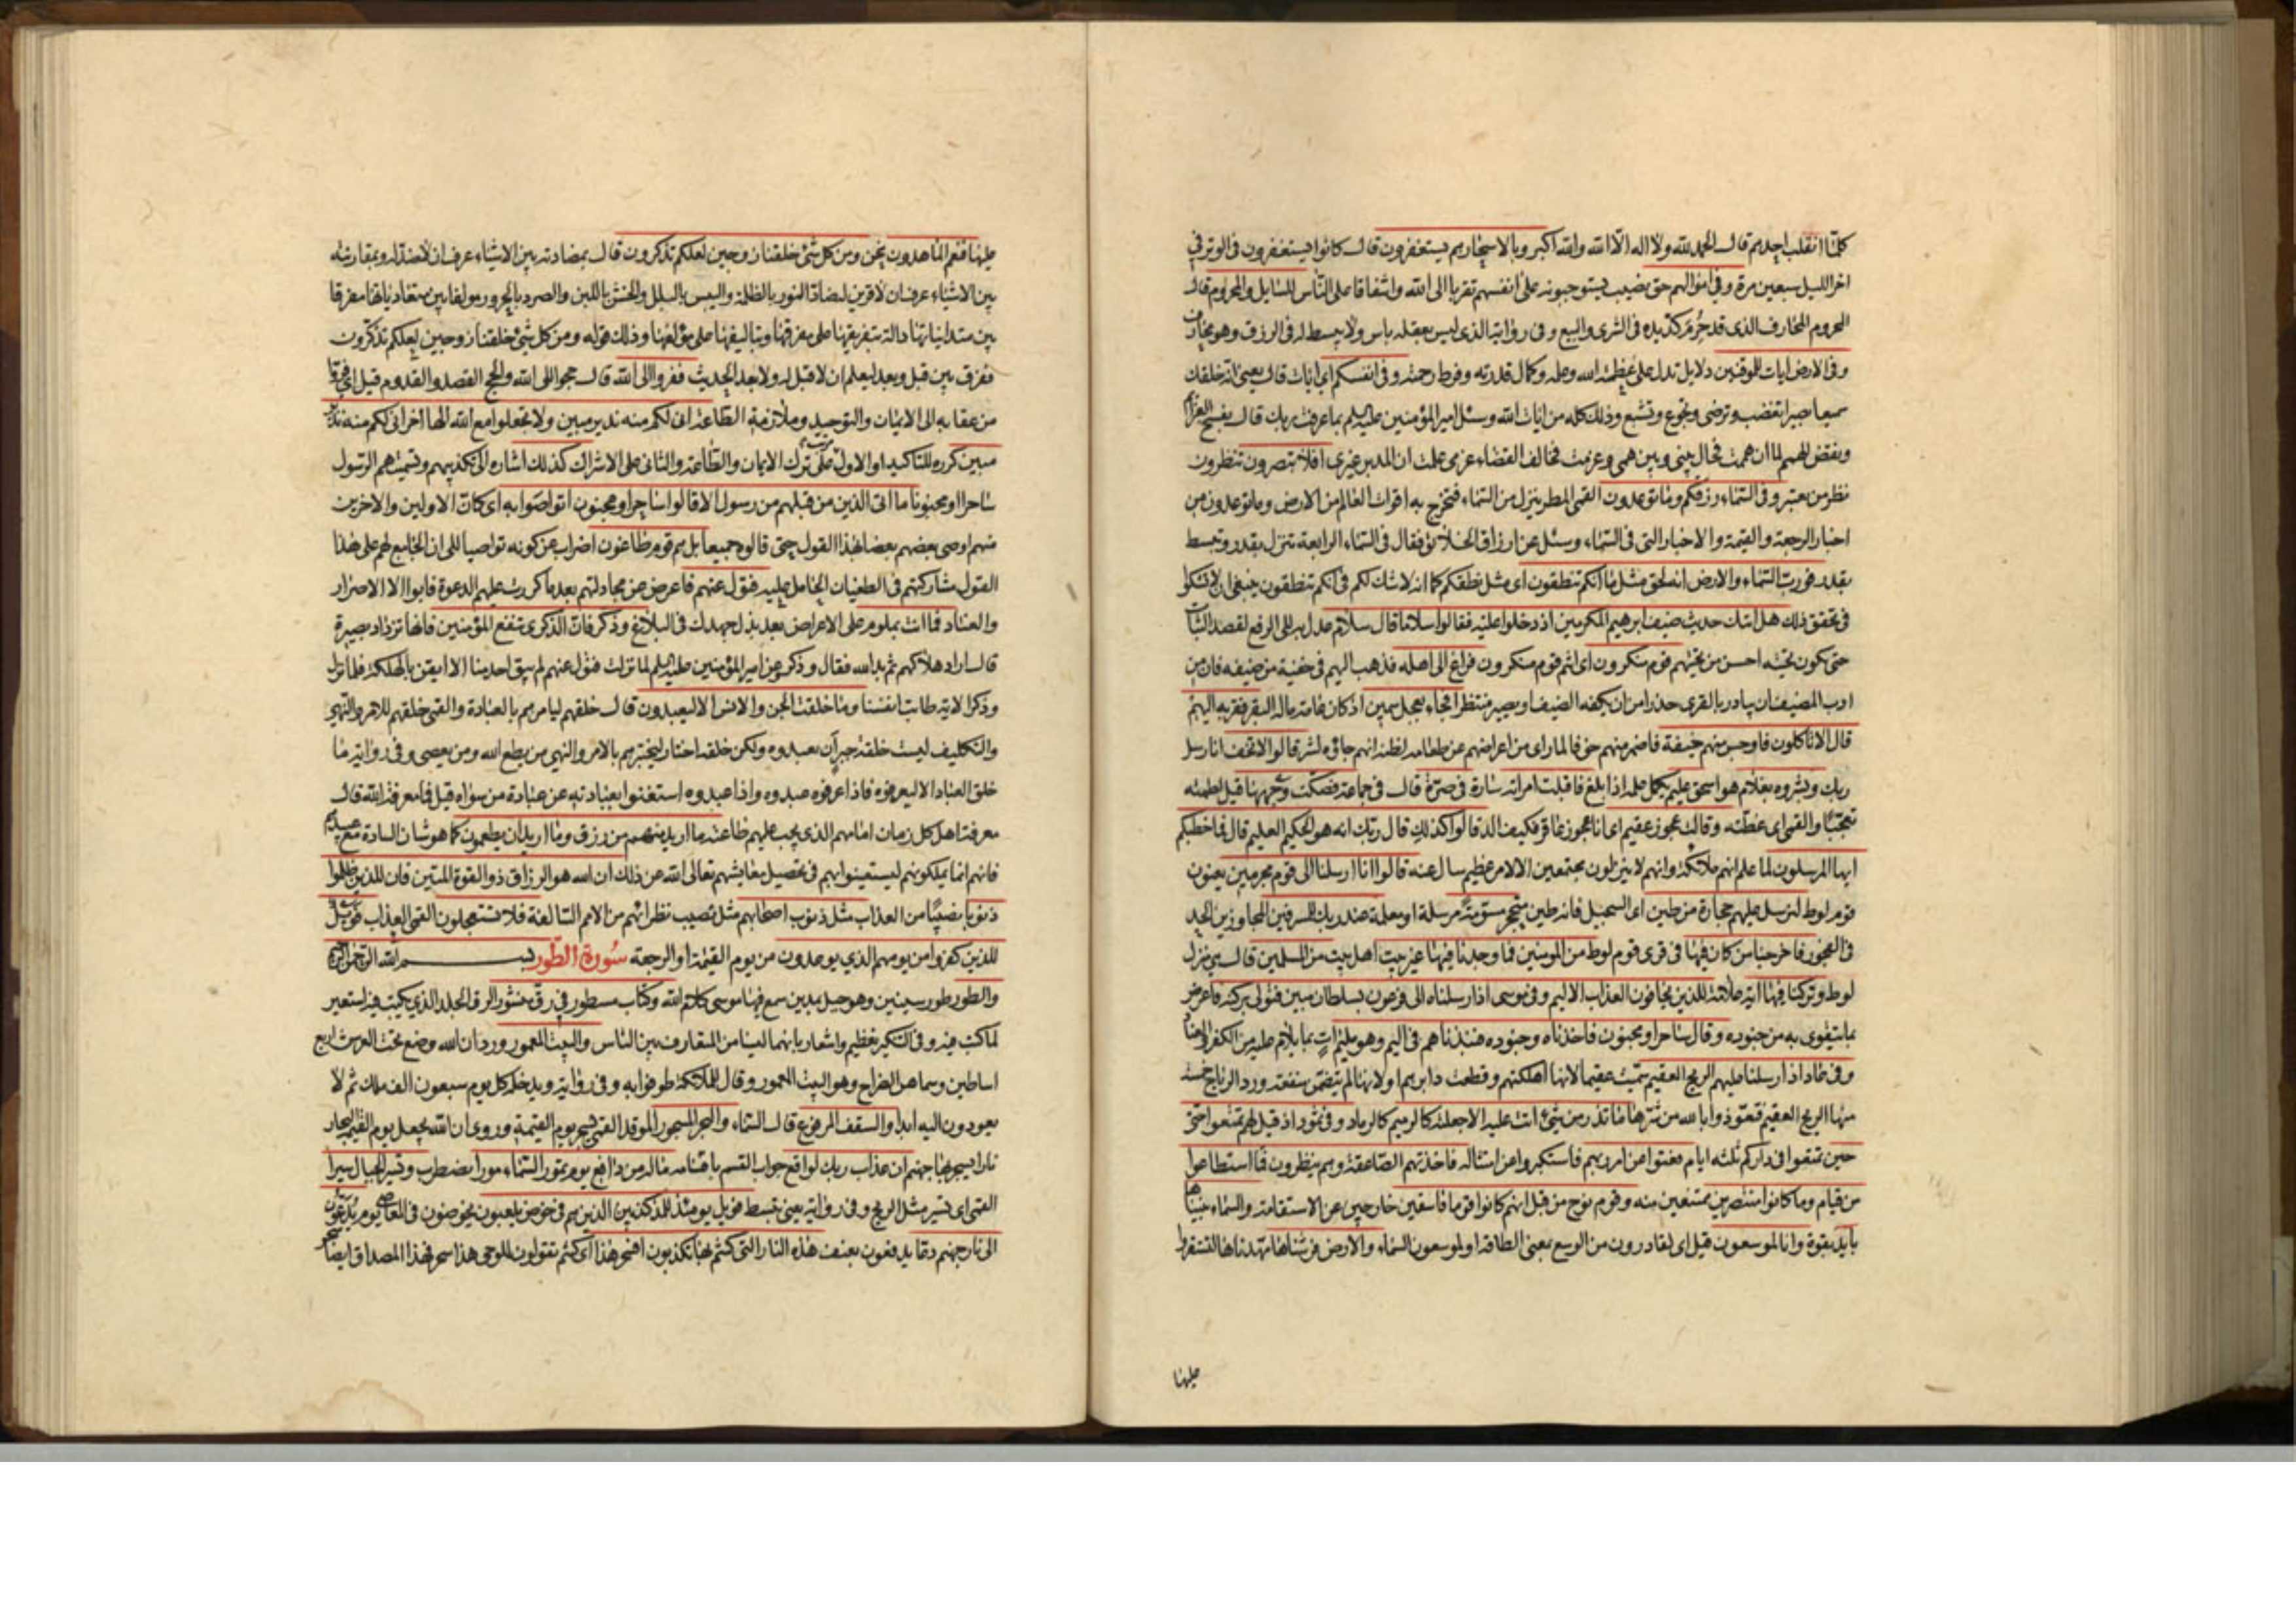 كلما انقلب احدهم قال الحمد لله ولا اله الا الله والله اكبر وبالاسحار هم يستغفرون قال كانوا يستغفرون في الوتر في
اخر الليل سبعين مرة وفي اموالهم حق نصيب يستوجبونه على انفسهم تقربا الى الله واشفاقا على الناس للسايل والمحروم قال
المحروم المحارف الذي قد حُرِم كد يده في الشرى والبيع وفي رواية الذي ليس بعقله باس ولا يبسط له في الرزق وهو محارف
وفي الارض ايات للموقنين دلايل تدل على عظمة الله وعلمه وكمال قدرته وفرط رحمته وفي انفسكم اي ايات قال يعني انه خلقك
سميعا بصيرا تغضب وترضى وتجوع وتشبع وذلك كله من ايات الله وسئل امير المؤمنين عليه السلم بما عرفت ربك قال بفسخ العزائم
ونقض الهمم لما ان هممت فحال بيني وبين همي وعزمت فخالف القضاء عزمي علمت ان المدبر غيري افلا تبصرون تنظرون
نظر من يعتبر وفي السماء رزقكم وما توعدون القمي المطر ينزل من السماء فتخرج به اقوات العالم من الارض وما توعدون من
اخبار الرجعة والقيمة والاخبار التي في السماء وسئل عن ارزاق الخلائق فقال في السماء الرابعة تنزل بقدر وتبسط
بقدر فورب السماء والارض انه لحق مثل ما انكم تنطقون اي مثل نطقكم كما انه لا شك لكم في انكم تنطقون ينبغي ان لا تشكوا
في تحقق ذلك هل اتيك حديث ضيف ابرهيم المكرمين اذ دخلوا عليه فقالوا سلاما قال سلام عدل به الى الرفع لقصد الثبات
حتى يكون تحيته احسن من تحيتهم قوم منكرون اي انتم قوم منكرون فراغ الى اهله فذهب اليهم في خفية من ضيفه فان من
ادب المضيف ان يبادر بالقرى حذرا من ان يكفه الضيف او يصير منتظرا فجاء بعجل سمين اذ كان عامة ماله البقر فقربه اليهم
قال الا تاكلون فاوجس منهم خيفة فاضمر منهم خوفا لما راى من اعراضهم عن طعامه لظنه انهم جاؤه لشر قالوا لا تخف انا رسل
ربك وبشروه بغلام هو اسحق عليم يكمل علمه اذا بلغ فاقبلت امراته سارة في صرة قال في جماعة فصكت وجهها قيل لطمته
تعجبا والقمي اي غطته وقالت عجوز عقيم اي انا عجوز عاقر فكيف الد قالوا كذلك قال ربك انه هو الحكيم العليم قال فما خطبكم
ايها المرسلون لما علم انهم ملائكة وانهم لا ينزلون مجتمعين الا لامر عظيم سال عنه قالوا انا ارسلنا الى قوم مجرمين يعنون
قوم لوط لنرسل عليهم حجارة من طين اي السجيل فانه طين متحجر مسومة مرسلة او معلمة عند ربك للمسرفين المجاوزين الحد
في الفجور فاخرجنا من كان فيها في قرى قوم لوط من المؤمنين فما وجدنا فيها غير بيت اهل بيت من المسلمين قال هي منزل
لوط وتركنا فيها اية علامة للذين يخافون العذاب الاليم وفي موسى اذ ارسلناه الى فرعون بسلطان مبين فتولى بركنه فاعرض
بما يتقوى به من جنوده وقال ساحر او مجنون فاخذناه وجنوده فنبذناهم في اليم وهو مليم ات بما يلام عليه من الكفر
وفي عاد اذ ارسلنا عليهم الريح العقيم سميت عقيما لانها اهلكتهم وقطعت دابرهم او لانها لم يتضمن منفعة ورد الرياح خمسة
منها الريح العقيم فتعوذوا بالله من شرها ما تذر من شيء اتت عليه الا جعلته كالرميم كالرماد وفي ثمود اذ قيل لهم تمتعوا حتى
حين تمتعوا في داركم ثلثة ايام فعتوا عن امر ربهم فاستكبروا عن امتثاله فاخذتهم الصاعقة وهم ينظرون فما استطاعوا
من قيام وما كانوا منتصرين ممتنعين منه وقوم نوح من قبل انهم كانوا قوما فاسقين خارجين عن الاستقامة والسماء بنيناها
بايد بقوة وانا لموسعون قيل اي لقادرون من الوسع بمعنى الطاقة او لموسعون السماء والارض فرشناها مهدناها لتستقروا
عليها
عليها فنعم الماهدون نحن ومن كل شيء خلقنا زوجين لعلكم تذكرون قال بمضادته بين الاشياء عرف ان لا ضد له وبمقارنته
بين الاشياء عرف ان لا قرين له ضاد النور بالظلمة واليبس بالبلل والخشن باللين والصرد بالحرور مولفا بين متعادياتها مفرقا
بين متدانياتها دالة بتفريقها على مفرقها وبتاليفها على مؤلفها وذلك قوله ومن كل شيء خلقنا زوجين لعلكم تذكرون
ففرق بين قبل وبعد ليعلم ان لا قبل له ولا بعد الحديث ففروا الى الله قال حجوا الى الله والحج القصد والقدوم قيل اي فروا
من عقابه الى الايمان والتوحيد وملازمة الطاعة اني لكم منه نذير مبين ولا تجعلوا مع الله الها اخر اني لكم منه نذير
مبين كرره للتاكيد او الاول على ترك الايمان والطاعة والثاني على الاشراك كذلك اشارة الى تكذيبهم وتسميتهم الرسول
ساحرا او مجنونا ما اتى الذين من قبلهم من رسول الا قالوا ساحر او مجنون اتواصوا به اي كان الاولين والاخرين
منهم اوصى بعضهم بعضا بهذا القول حتى قالوه جميعا بل هم قوم طاغون اضراب عن كونه تواصيا الى ان الجامع لهم على هذا
القول مشاركتهم في الطغيان الحامل عليه فتول عنهم فاعرض عن مجادلتهم بعد ما كررت عليهم الدعوة فابوا الا الاصرار
والعناد فما انت بملوم على الاعراض بعد بذل جهدك في البلاغ وذكر فان الذكرى تنفع المؤمنين فانها تزداد بصيرة
قال اراد هلاكهم ثم بدا لله فقال وذكر عن امير المؤمنين عليه السلم لما نزلت فتول عنهم لم يبق احد منا الا ايقن بالهلكة فلما نزل
وذكر الاية طابت انفسنا وما خلقت الجن والانس الا ليعبدون قال خلقهم ليامرهم بالعبادة والقمي خلقهم للامر والنهي
والتكليف ليست خلقة جبر ان يعبدوه ولكن خلقة اختبار ليختبرهم بالامر والنهي من يطع الله ومن يعصي وفي رواية ما
خلق العباد الا ليعرفوه فاذا عرفوه عبدوه واذا عبدوه استغنوا بعبادته عن عبادة من سواه قيل فما معرفة الله قال
معرفة اهل كل زمان امامهم الذي يجب عليهم طاعته ما اريد منهم من رزق وما اريد ان يطعمون كما هو شان السادة مع عبيدهم
فانهم انما يملكونهم ليستعينوا بهم في تحصيل معايشهم تعالى الله عن ذلك ان الله هو الرزاق ذو القوة المتين فان للذين ظلموا
ذنوبا نصيبا من العذاب مثل ذنوب اصحابهم مثل نصيب نظرائهم من الامم السالفة فلا تستعجلون القمي العذاب فويل
للذين كفروا من يومهم الذي يوعدون من يوم القيمة او الرجعة سورة الطور بسم الله الرحمن الرحيم
والطور طور سينين وهو جبل بمدين سمع فيها موسى كلام الله وكتاب مسطور في رق منشور الرق الجلد الذي يكتب فيه استعير
لما كتب فيه وفي التنكير تعظيم واشعار بانهما ليسا من المتعارف بين الناس والبيت المعمور ورد ان الله وضع تحت العرش اربع
اساطين وسماهن الضراح وهو البيت المعمور وقال للملائكة طوفوا به وفي رواية ويدخله كل يوم سبعون الف ملك ثم لا
يعودون اليه ابدا والسقف المرفوع قال السماء والبحر المسجور الموقد القمي يسجر يوم القيمة وروي ان الله يجعل يوم القيمة البحار
نارا يسجر بها جهنم ان عذاب ربك لواقع جواب القسم باقسامه ماله من دافع يوم تمور السماء مورا يضطرب وتسير الجبال سيرا
القمي اي تسير مثل الريح وفي رواية يعني تبسط فويل يومئذ للمكذبين الذين هم في خوض يلعبون يخوضون في المعاصي يوم يدعون
الى نار جهنم دعا يدفعون بعنف هذه النار التي كنتم بها تكذبون افسحر هذا اي كنتم تقولون للوحي هذا سحر فهذا المصداق ايضا سحر